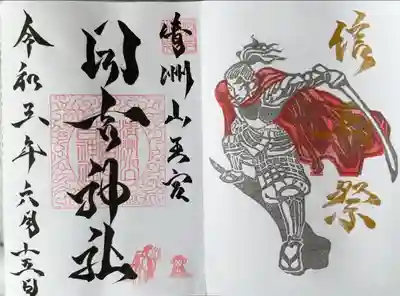 信長祭
清洲山王宮
日吉神社
令和五年六月十五日